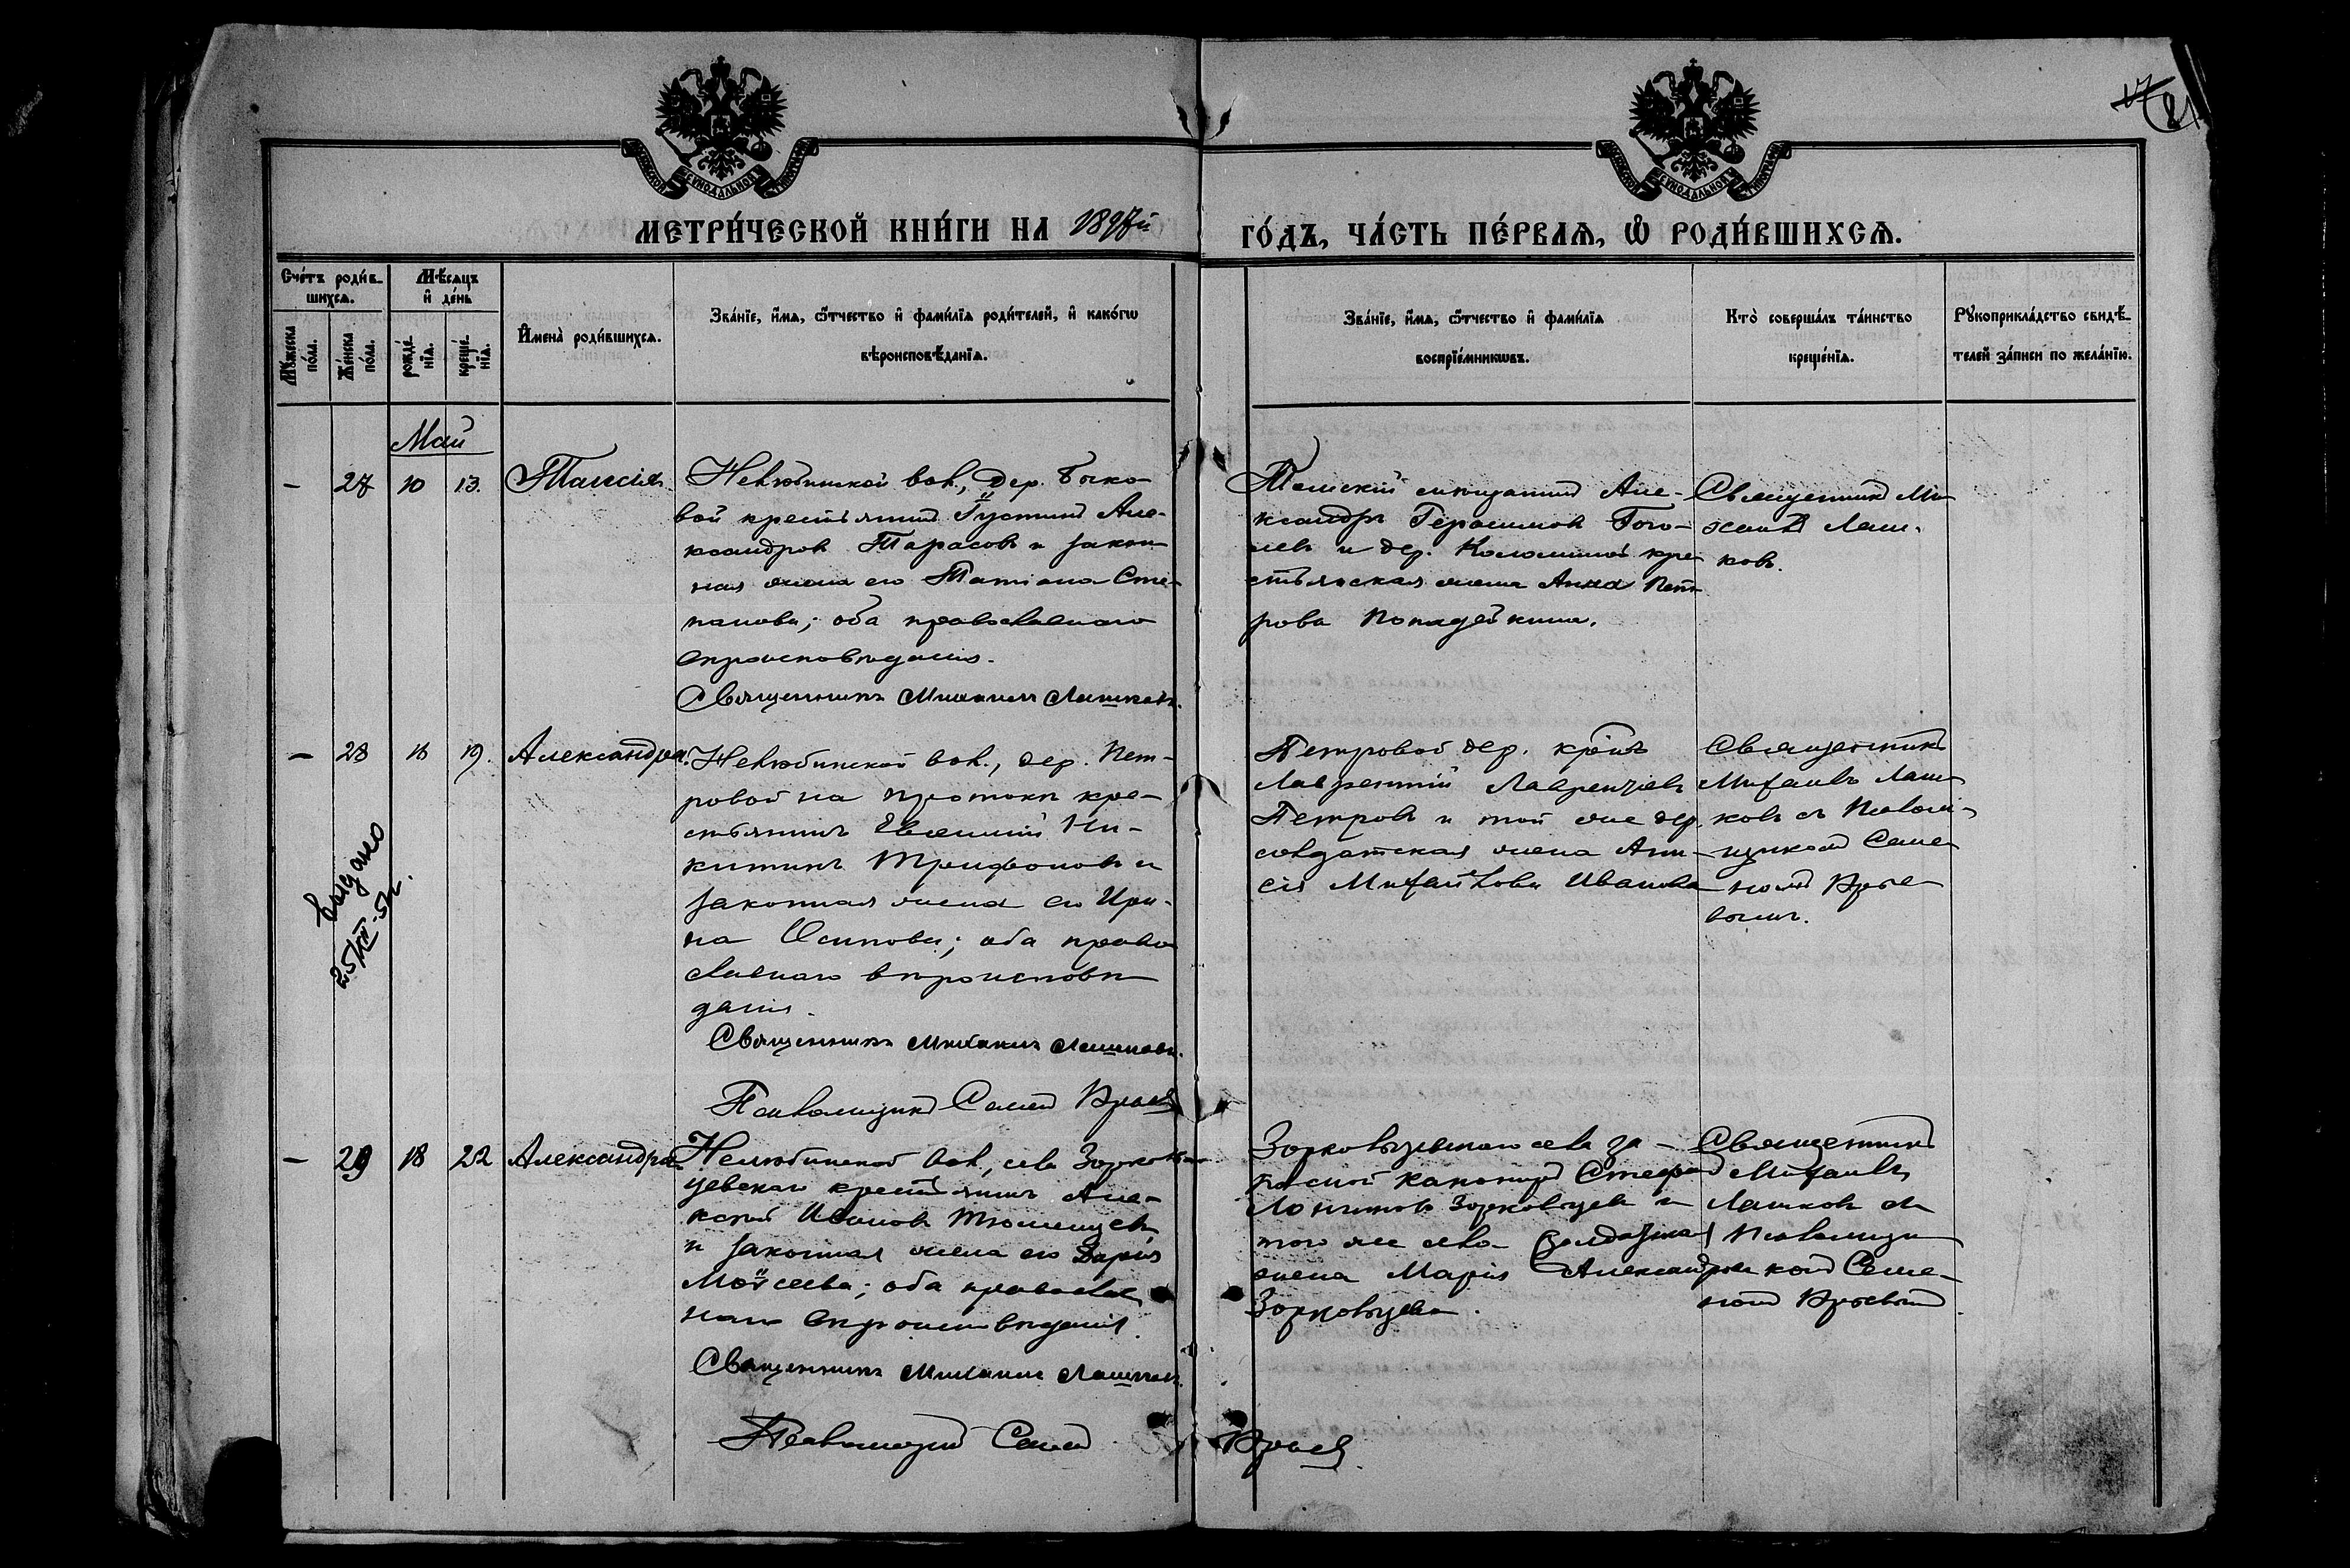 МЕТРИ́ЧЕСКОЙ КНИ́ГИ НА 1897й ГО́ДЪ, ЧА́СТЬ ПЕ́РВАѦ, Ѡ҆ РОДИ́ВШИХСѦ.
Сче́тъ роди́в-
шихсѧ.
Мѣ́сѧцъ
и҆ де́нь
Мꙋ́жеска
по́ла.
Же́нска
по́ла.
рожде́-
нїѧ.
креще́-
нїѧ.
И҆мена̀ роди́вшихсѧ.
Зва́нїе, и҆́мѧ, ѻ҆́тчество и҆ фами́лїѧ роди́телей, и҆ како́гѡ
вѣроисповѣ́данїѧ.
Зва́нїе, и҆́мѧ, ѻ҆́тчество и҆ фами́лїѧ
воспрїе́мникѡвъ.
Кто̀ соверша́лъ та́инство
креще́нїѧ.
Рꙋкоприкла́дство свидѣ́-
телей за́писи по жела́нїю.
Май
— 27 10 13. Таисія
Нелюбинской вол., дер. Быко-
вой крестьянинъ Іустинъ Але-
ксандровъ Тарасовъ и закон-
ная жена его Татіана Сте-
панова; оба православнаго
вѣроисповѣданія.
Священникъ Михаилъ Лашковъ.
Томскій Але-
ксандръ Герасимовъ
и дер. Коломиной кре-
стьянская жена Анна Пет-
рова Попадейкина.
Священникъ Ми-
хаилъ Лаш-
ковъ.
— 28 18 19. Александра.
Нелюбинской вол., дер. Пет-
ровой на протокѣ кре-
стьянинъ Евѳимій Ни-
китинъ Трифоновъ и
законная жена его Ири-
на Осипова; оба право-
славнаго вѣроисповѣ-
данія.
Священникъ Михаилъ Лашковъ.
Псаломщикъ Семенъ
Петровой дер. кр-нъ
Лаврентій Лаврентіевъ
Петровъ и той же дер.
солдатская жена
Михайлова Иванова
Священникъ
Михаилъ Лаш-
ковъ съ Псалом-
щикомъ Семе-
номъ
Выдано
25/XII 51г.
— 29 18 22 Александра
Нелюбинской вол., села Зорко
цевскаго крестьянинъ Але-
ксѣй Ивановъ Тюменцевъ
и законная жена его Дарія
Моѵсеева; оба православ
наго вѣроисповѣданія.
Священникъ Михаилъ Лашковъ.
Псаломщикъ Семенъ
Зоркольцевскаго села за-
пасной канониръ Стефанъ
Логиновъ Зоркольцевъ и
того же села солдатская
жена Марія Александрова
Зоркольцева.
Священникъ
Михаилъ
Лашковъ съ
Псаломщи
комъ Семе-
номъ